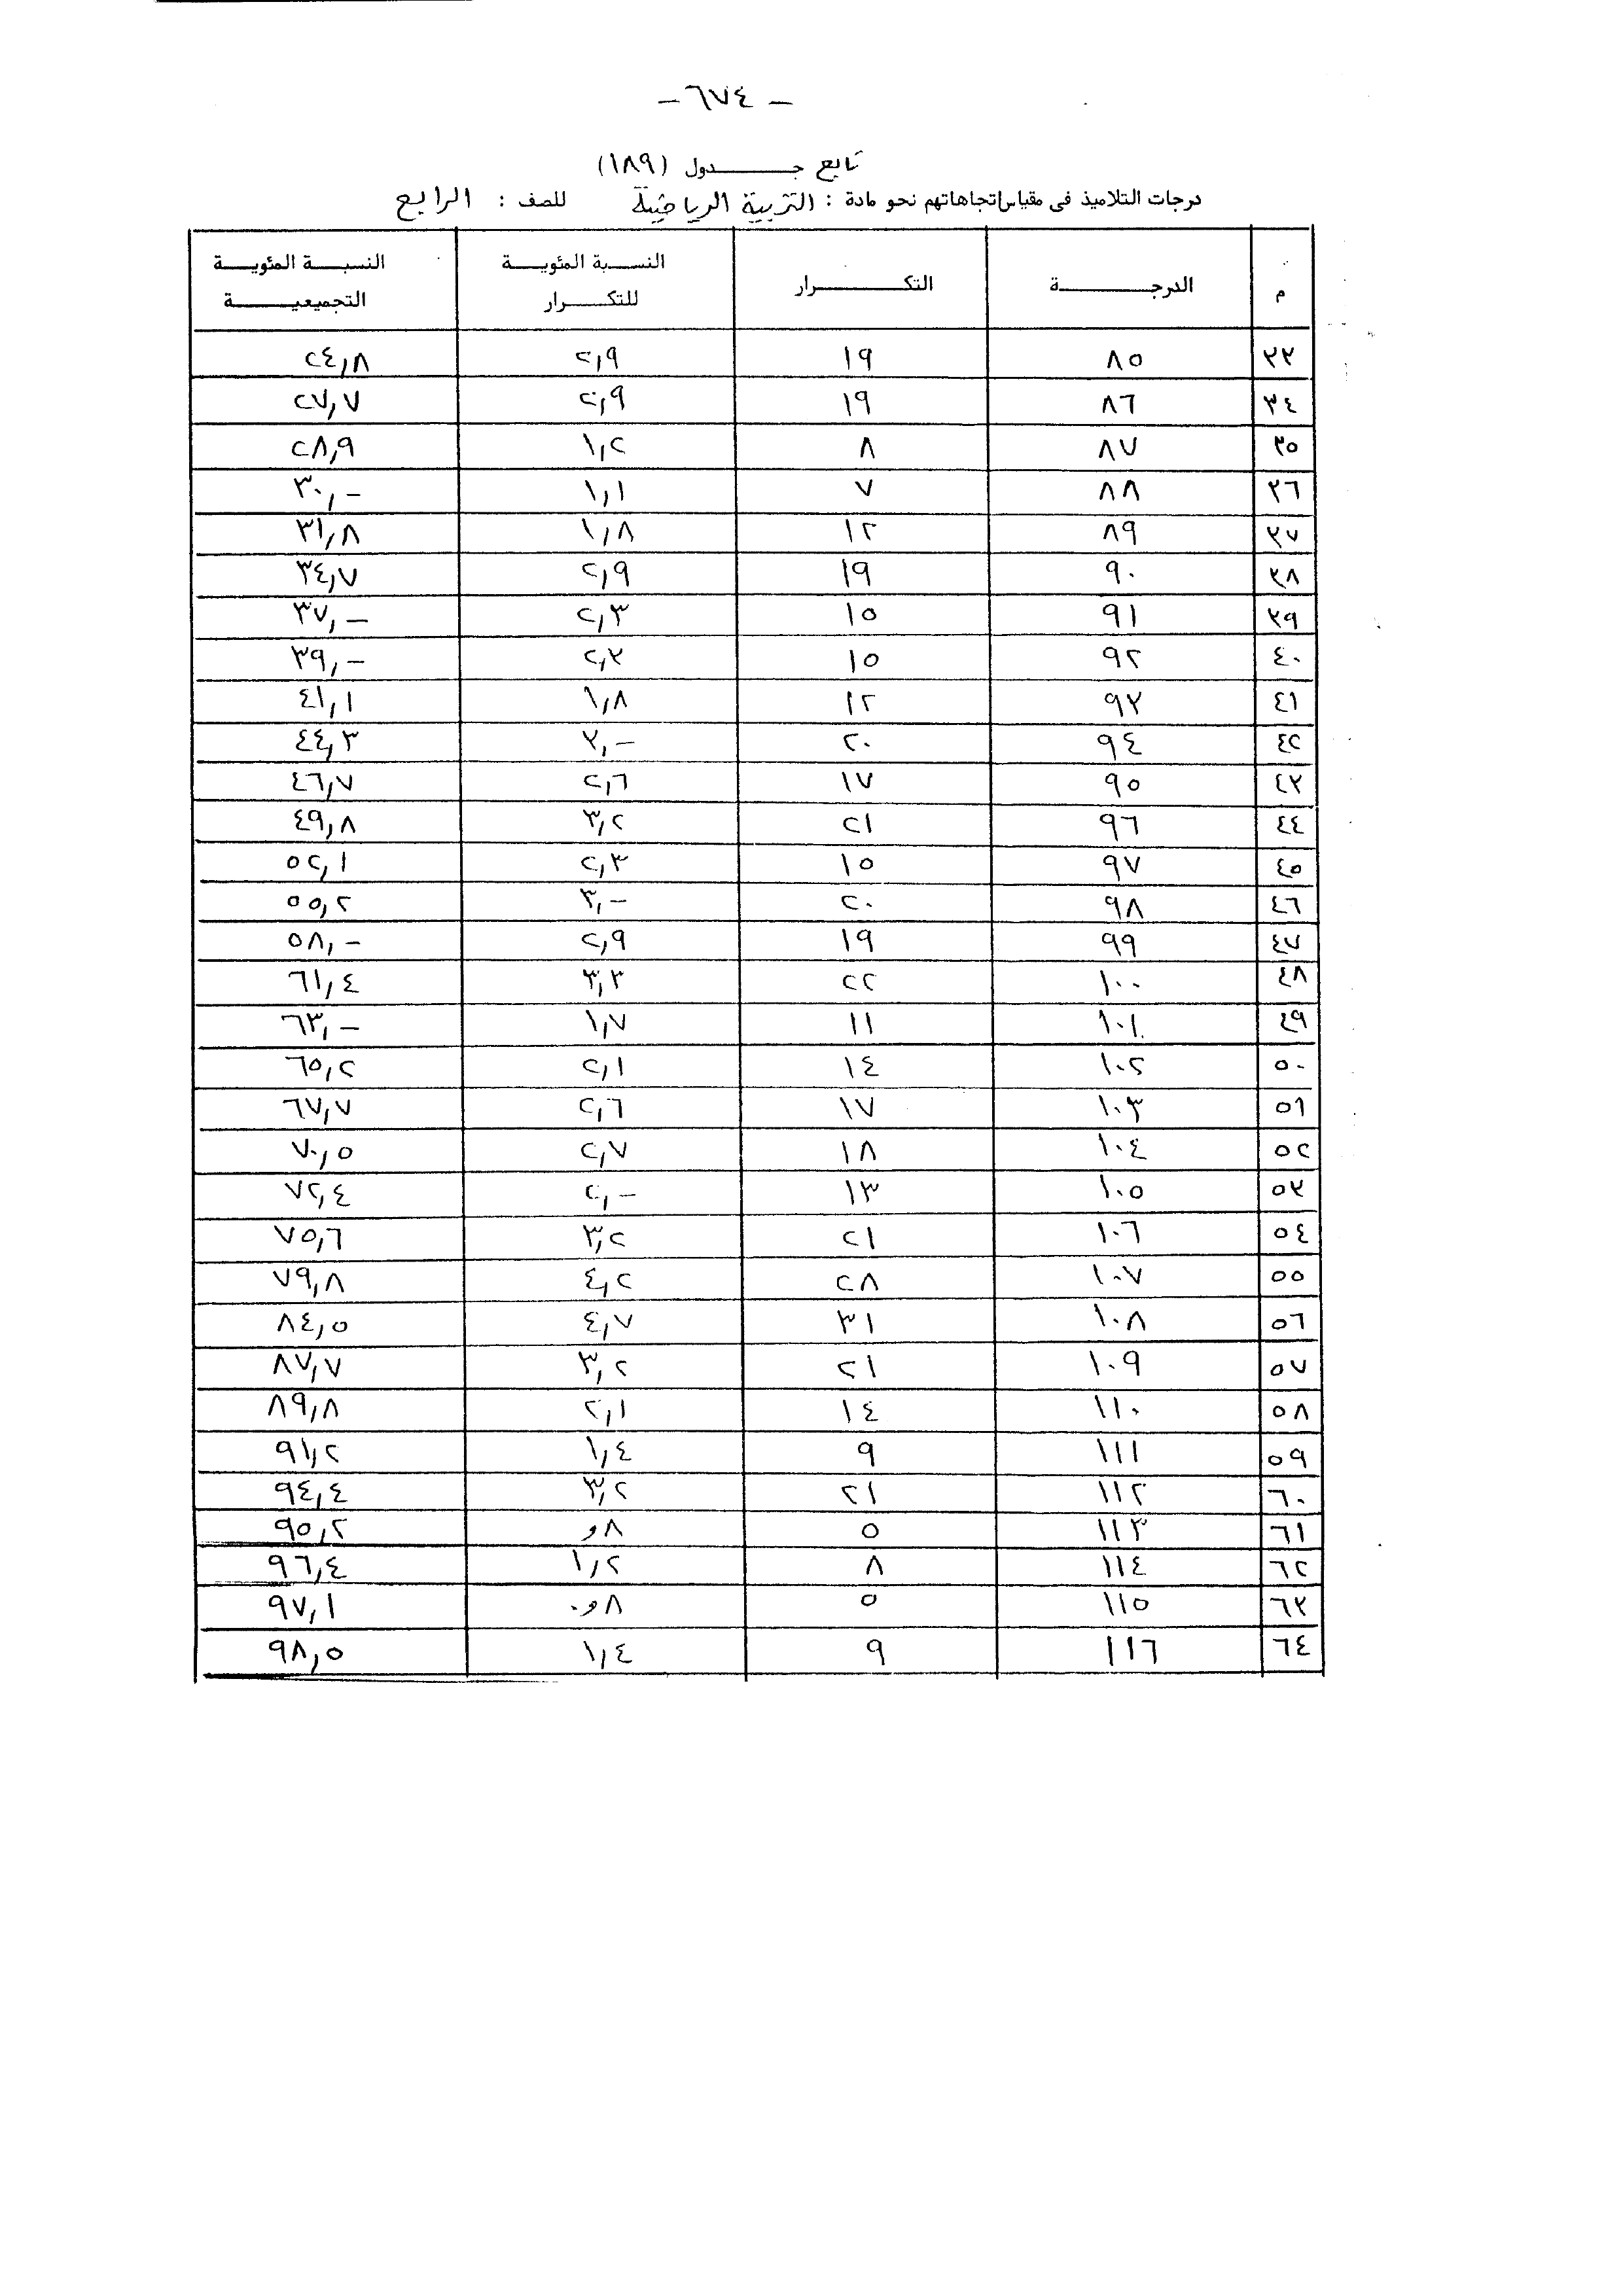 - ٦٧٤ -
تابع جـــدول (١٨٩)
درجات التلاميذ فى مقياس اتجاهاتهم نحو مادة : التربية الرياضية للصف : الرابع
م الدرجـــة التكـــرار النسبة المئوية للتكـــرار النسبة المئوية التجميعية
٣٣ ٨٥ ١٩ ٢,٩ ٢٤,٨
٣٤ ٨٦ ١٩ ٢,٩ ٢٧,٧
٣٥ ٨٧ ٨ ١,٢ ٢٨,٩
٣٦ ٨٨ ٧ ١,١ ٣٠,-
٣٧ ٨٩ ١٢ ١,٨ ٣١,٨
٣٨ ٩٠ ١٩ ٢,٩ ٣٤,٧
٣٩ ٩١ ١٥ ٢,٣ ٣٧,-
٤٠ ٩٢ ١٥ ٢,٣ ٣٩,-
٤١ ٩٣ ١٢ ١,٨ ٤١,١
٤٢ ٩٤ ٢٠ ٣,- ٤٤,٣
٤٣ ٩٥ ١٧ ٢,٦ ٤٦,٧
٤٤ ٩٦ ٢١ ٣,٢ ٤٩,٨
٤٥ ٩٧ ١٥ ٢,٣ ٥٢,١
٤٦ ٩٨ ٢٠ ٣,- ٥٥,٢
٤٧ ٩٩ ١٩ ٢,٩ ٥٨,-
٤٨ ١٠٠ ٢٢ ٣,٣ ٦١,٤
٤٩ ١٠١ ١١ ١,٧ ٦٣,-
٥٠ ١٠٢ ١٤ ٢,١ ٦٥,٢
٥١ ١٠٣ ١٧ ٢,٦ ٦٧,٧
٥٢ ١٠٤ ١٨ ٢,٧ ٧٠,٥
٥٣ ١٠٥ ١٣ ٢,- ٧٢,٤
٥٤ ١٠٦ ٢١ ٣,٢ ٧٥,٦
٥٥ ١٠٧ ٢٨ ٤,٢ ٧٩,٨
٥٦ ١٠٨ ٣١ ٤,٧ ٨٤,٥
٥٧ ١٠٩ ٢١ ٣,٢ ٨٧,٧
٥٨ ١١٠ ١٤ ٢,١ ٨٩,٨
٥٩ ١١١ ٩ ١,٤ ٩١,٢
٦٠ ١١٢ ٢١ ٣,٢ ٩٤,٤
٦١ ١١٣ ٥ ٨و ٩٥,٢
٦٢ ١١٤ ٨ ١,٢ ٩٦,٤
٦٣ ١١٥ ٥ ٨و٠ ٩٧,١
٦٤ ١١٦ ٩ ١,٤ ٩٨,٥